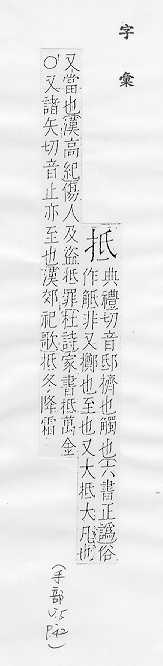 字彙
抵
典禮切音邸擠也觸也六書正譌俗
作觝非又擲也至也又大抵大凡也
又當也漢高紀傷人及盜抵罪杜詩家書抵萬金
○又諸矢切音止亦至也漢郊祀歌抵冬降霜
(手部
P42